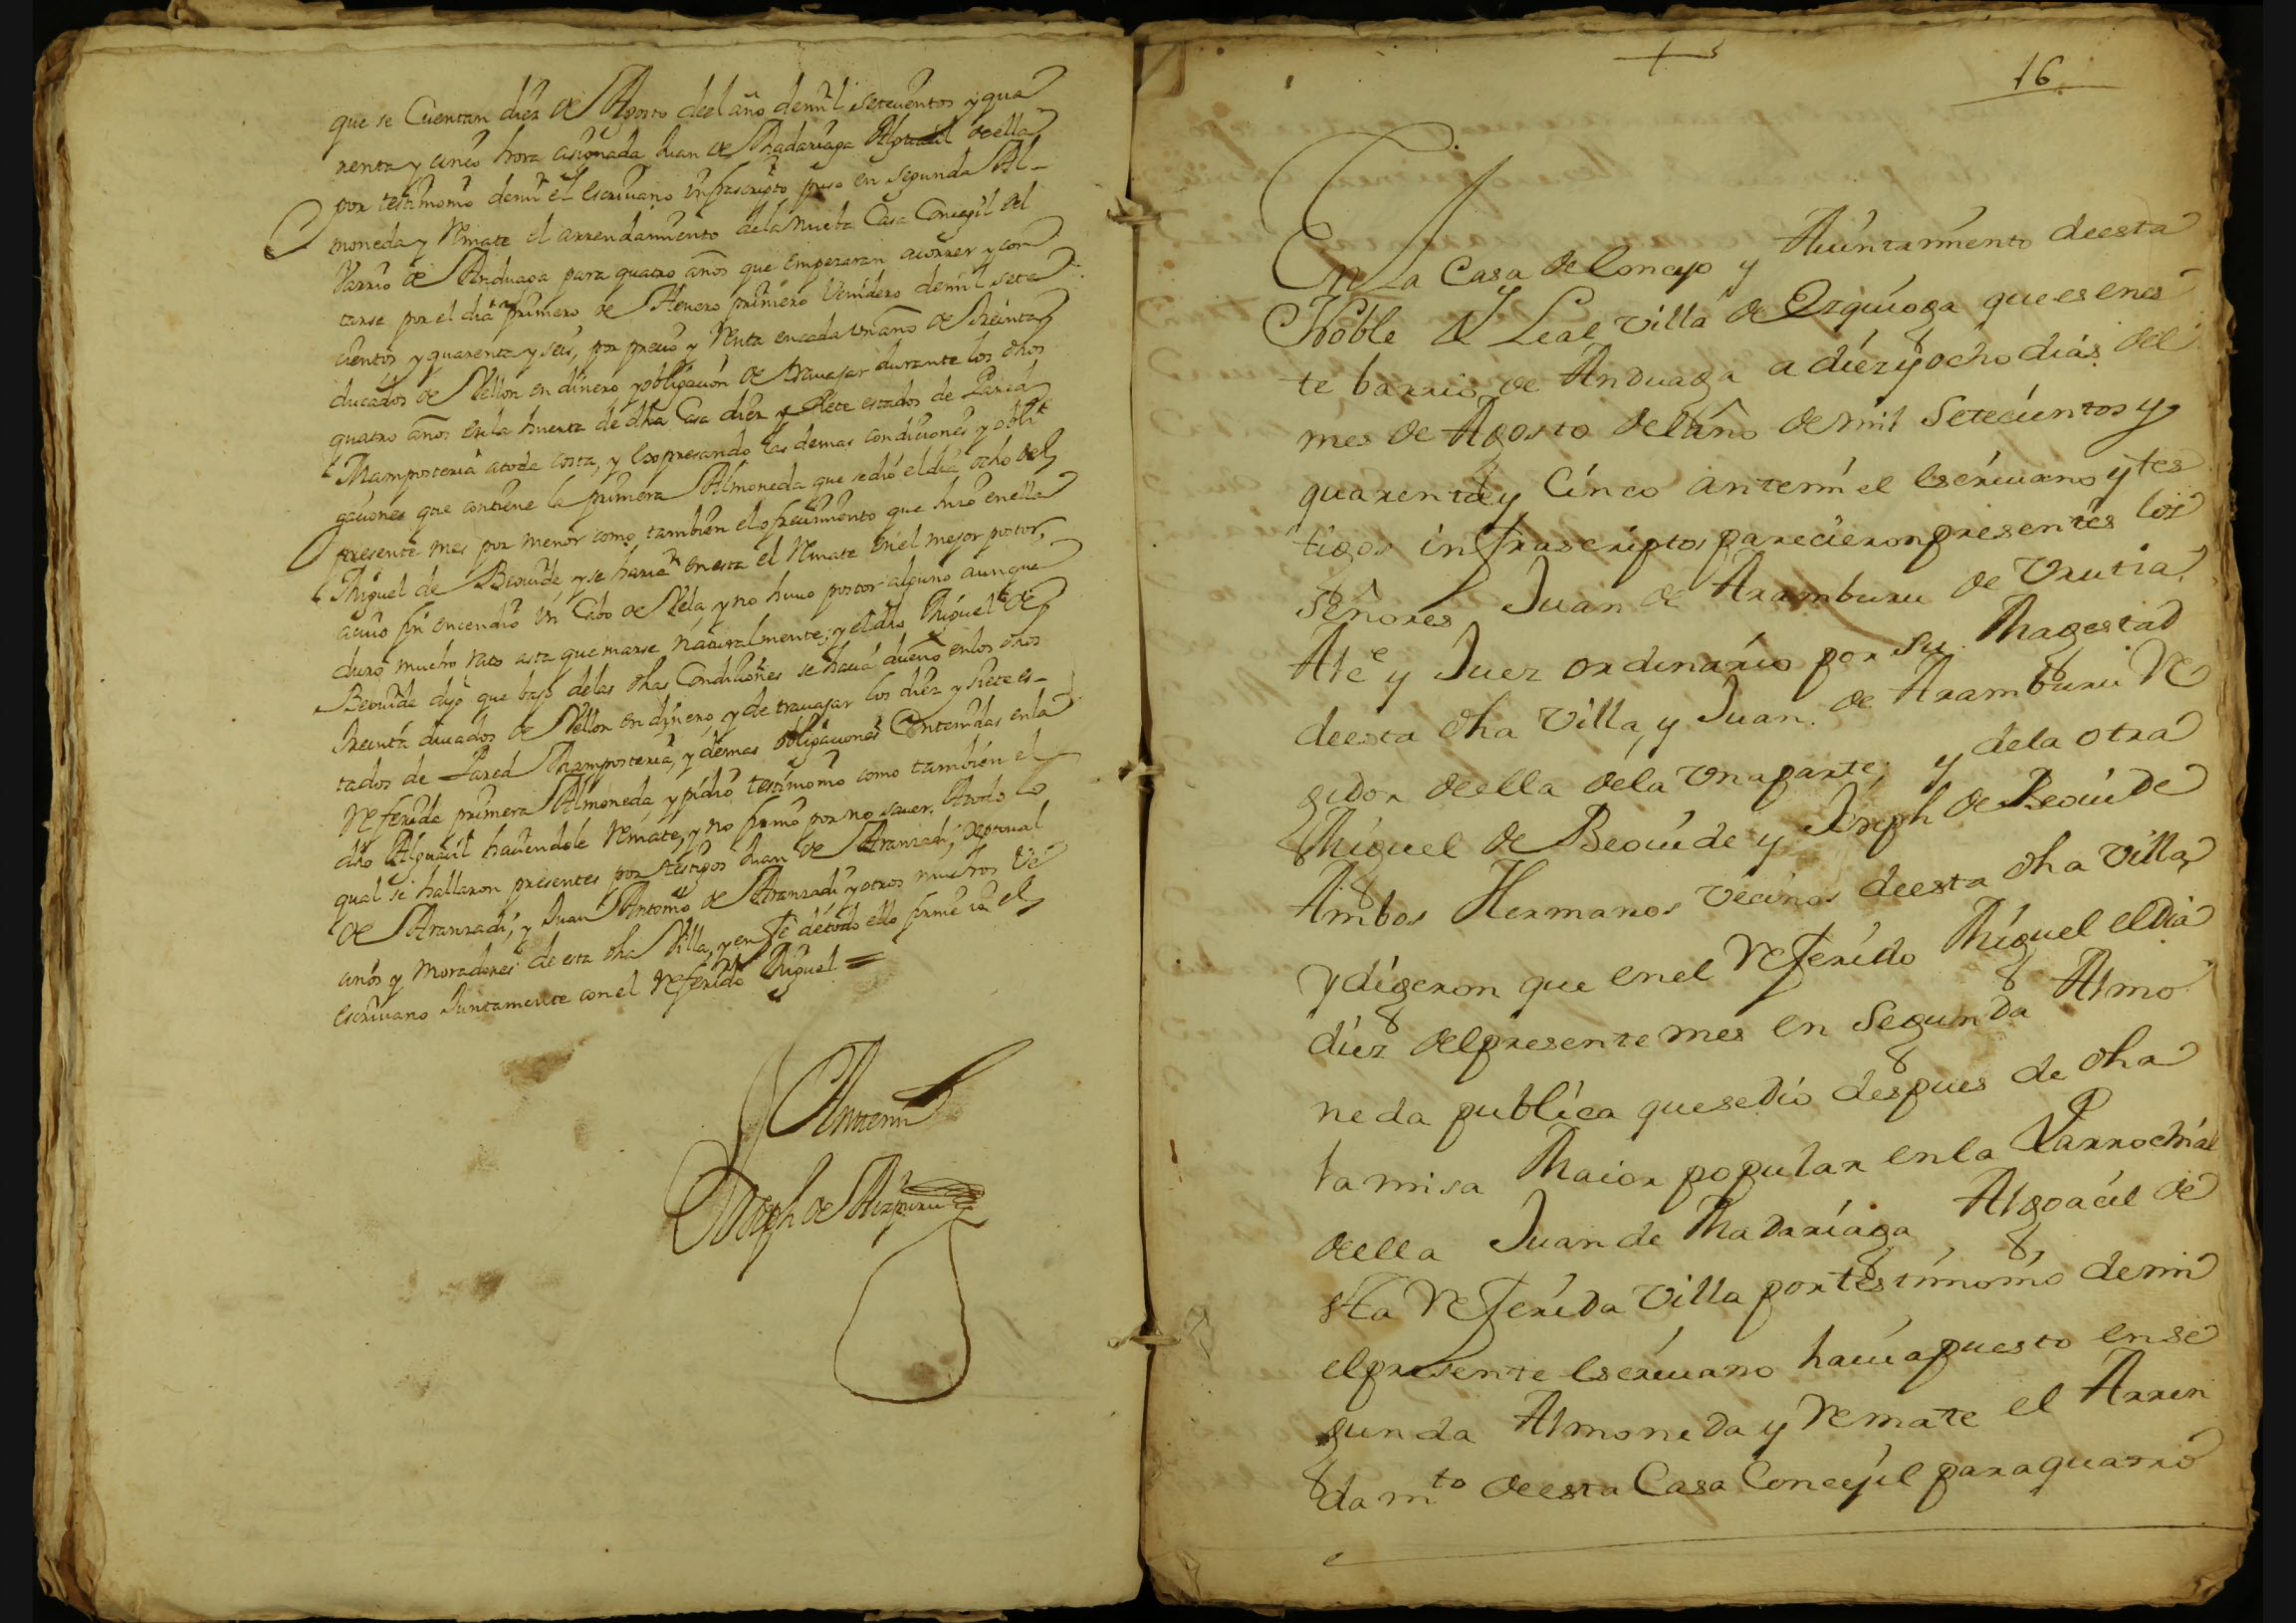 que se Cuentan diez de Agosto deel año demil setecientos y qua
renta y cinco hora asignada Juan de Madariaga Alguacil deella
por testimonio demi el escriuano infrascripto puso en segunda Al-
moneda y Remate el arrendamiento dela nueba Casa Concegil del
Varrio de Anduaga para quatro años que empezaran acorrer y con
tarse por el dia primero de Henero primero Venidero demil sete
cientos y quarenta y seis, por precio y Renta encada vn año de Treinta
ducados de Vellon en dinero y obligacion de trauajar durante los dhos
quatro años enla huerta de dha Casa diez y siete estados de Pared
Mamposteria atoda costa, y expresando las demas condiciones y obli
gaciones que contiene la primera Almoneda que sedio el dia ocho del
presente mes por menor como tambien el ofrecimiento que hizo enella
Miguel de Beouide y se haria enesta el Remate en el mejor postor,
acuio fin encendio vn Cabo de Vela y no huuo postor alguno aunque
duro mucho rato asta quemarse naturalmente; y eldho Miguel de
Beouide dijo que bajo delas dhas Condiciones se hacia dueño enlos dhos
Treinta ducados de Vellon en dinero, y de trauajar los diez y siete es-
tados de Pared Mamposteria, y demas obligaciones Contenidas enla
Referida primera Almoneda, y pidio testimonio como tambien el
dho Alguacil haciendole Remate, y no firmo por no sauer. Atodo lo
qual se hallaron presentes por testigos Juan de Aranzadi, Pasqual
de Aranzadi, y Juan Antonio de Aranzadi y otros muchos Ve
cinos y Moradores de esta dha Villa, y en fe detodo ello firme io el
escriuano Juntamente con el Referido Miguel =
Antemi
Joseph de Aizpuru
16
En La Casa de Concejo y Aiuntamiento deesta
Noble y Leal Villa de Ezquioga que es enes
te barrio de Anduaga a diez y ocho dias del
mes de Agosto del año de mil Setecientos y
quarenta y Cinco antemi el escriuano y tes
tigos infrascriptos parecieron presentes los
Señores Juan de Aramburu de Vrutia
Alce y Juez ordinario por su Magestad
deesta dha Villa, y Juan de Aramburu Re
gidor deella dela vna parte, y dela otra
Miguel de Beouide y Joseph de Beouide
Ambos Hermanos Vecinos deesta dha Villa,
y digeron que enel Referido Miguel el dia
diez delpresente mes en Segunda Almo
neda publica quesedio despues de dha
la misa Maior popular enla Parrochial
deella Juan de Madariaga Algoacil de
sta Referida Villa por testimonio demi
elpresente escriuano hauia puesto en se
gunda Almoneda y Remate el Arren
damto deesta Casa Concejil para quatro